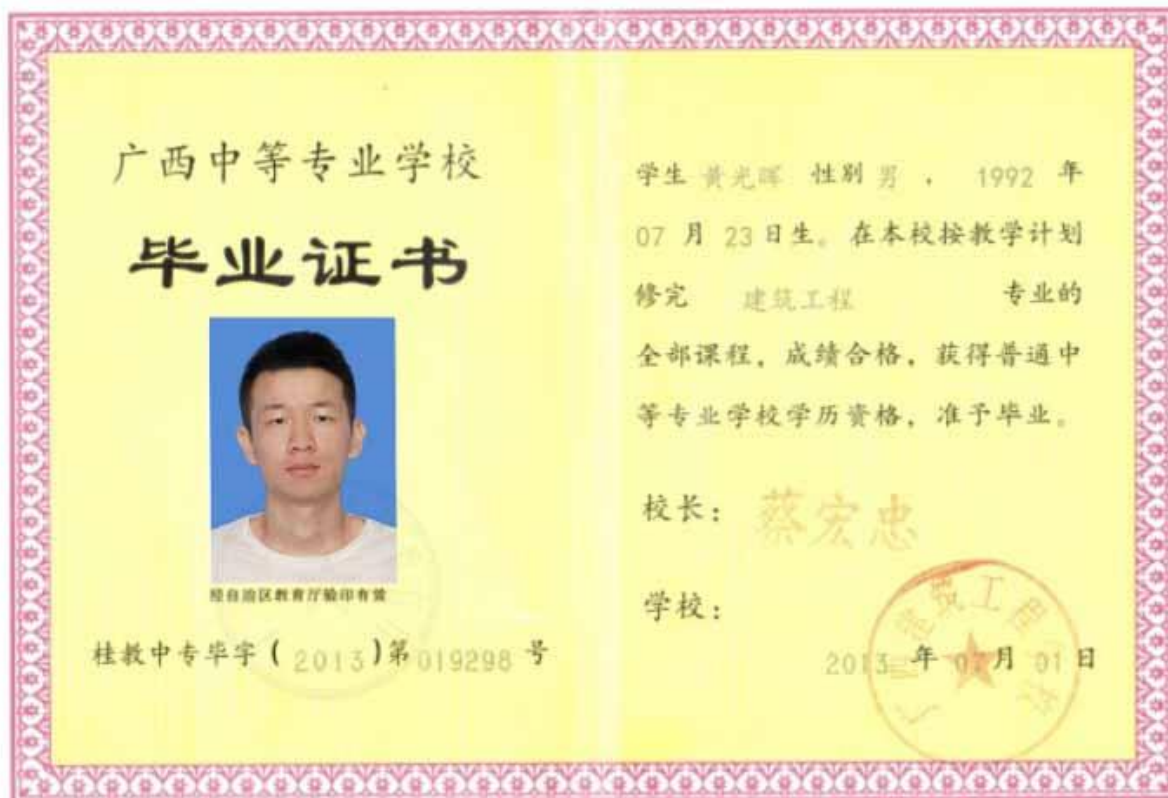 广西中等专业学校
毕业证书
经自治区教育厅验印有效
桂教中专毕字(2013)第019298号
学生 黄光晖 性别 男 , 1992 年
07 月 23日生。在本校按教学计划
修完 建筑工程 专业的
全部课程,成绩合格,获得普通中
等专业学校学历资格,准予毕业。
校长: 蔡宏忠
学校:
2013 年 07 月 01 日